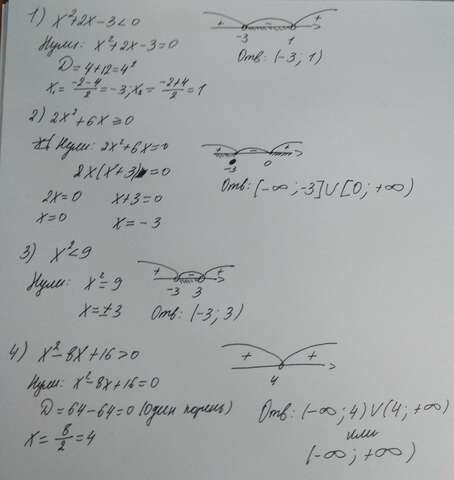 1) x²+2x-3<0
Нули: x²+2x-3=0
D=4+12=4²
x₁=(-2-4)/2=-3; x₂=(-2+4)/2=1
+ - +
-3 1
Отв: (-3; 1)
2) 2x²+6x≥0
Нули: 2x²+6x=0
2x(x+3)=0
2x=0 x+3=0
x=0 x=-3
+ - +
-3 0
Отв: [-∞;-3]∪[0;+∞)
3) x²<9
Нули: x²=9
x=±3
+ - +
-3 3
Отв: (-3; 3)
4) x²-8x+16>0
Нули: x²-8x+16=0
D=64-64=0 (один корень)
x=8/2=4
+ +
4
Отв: (-∞;4)∪(4;+∞)
или
(-∞;+∞)